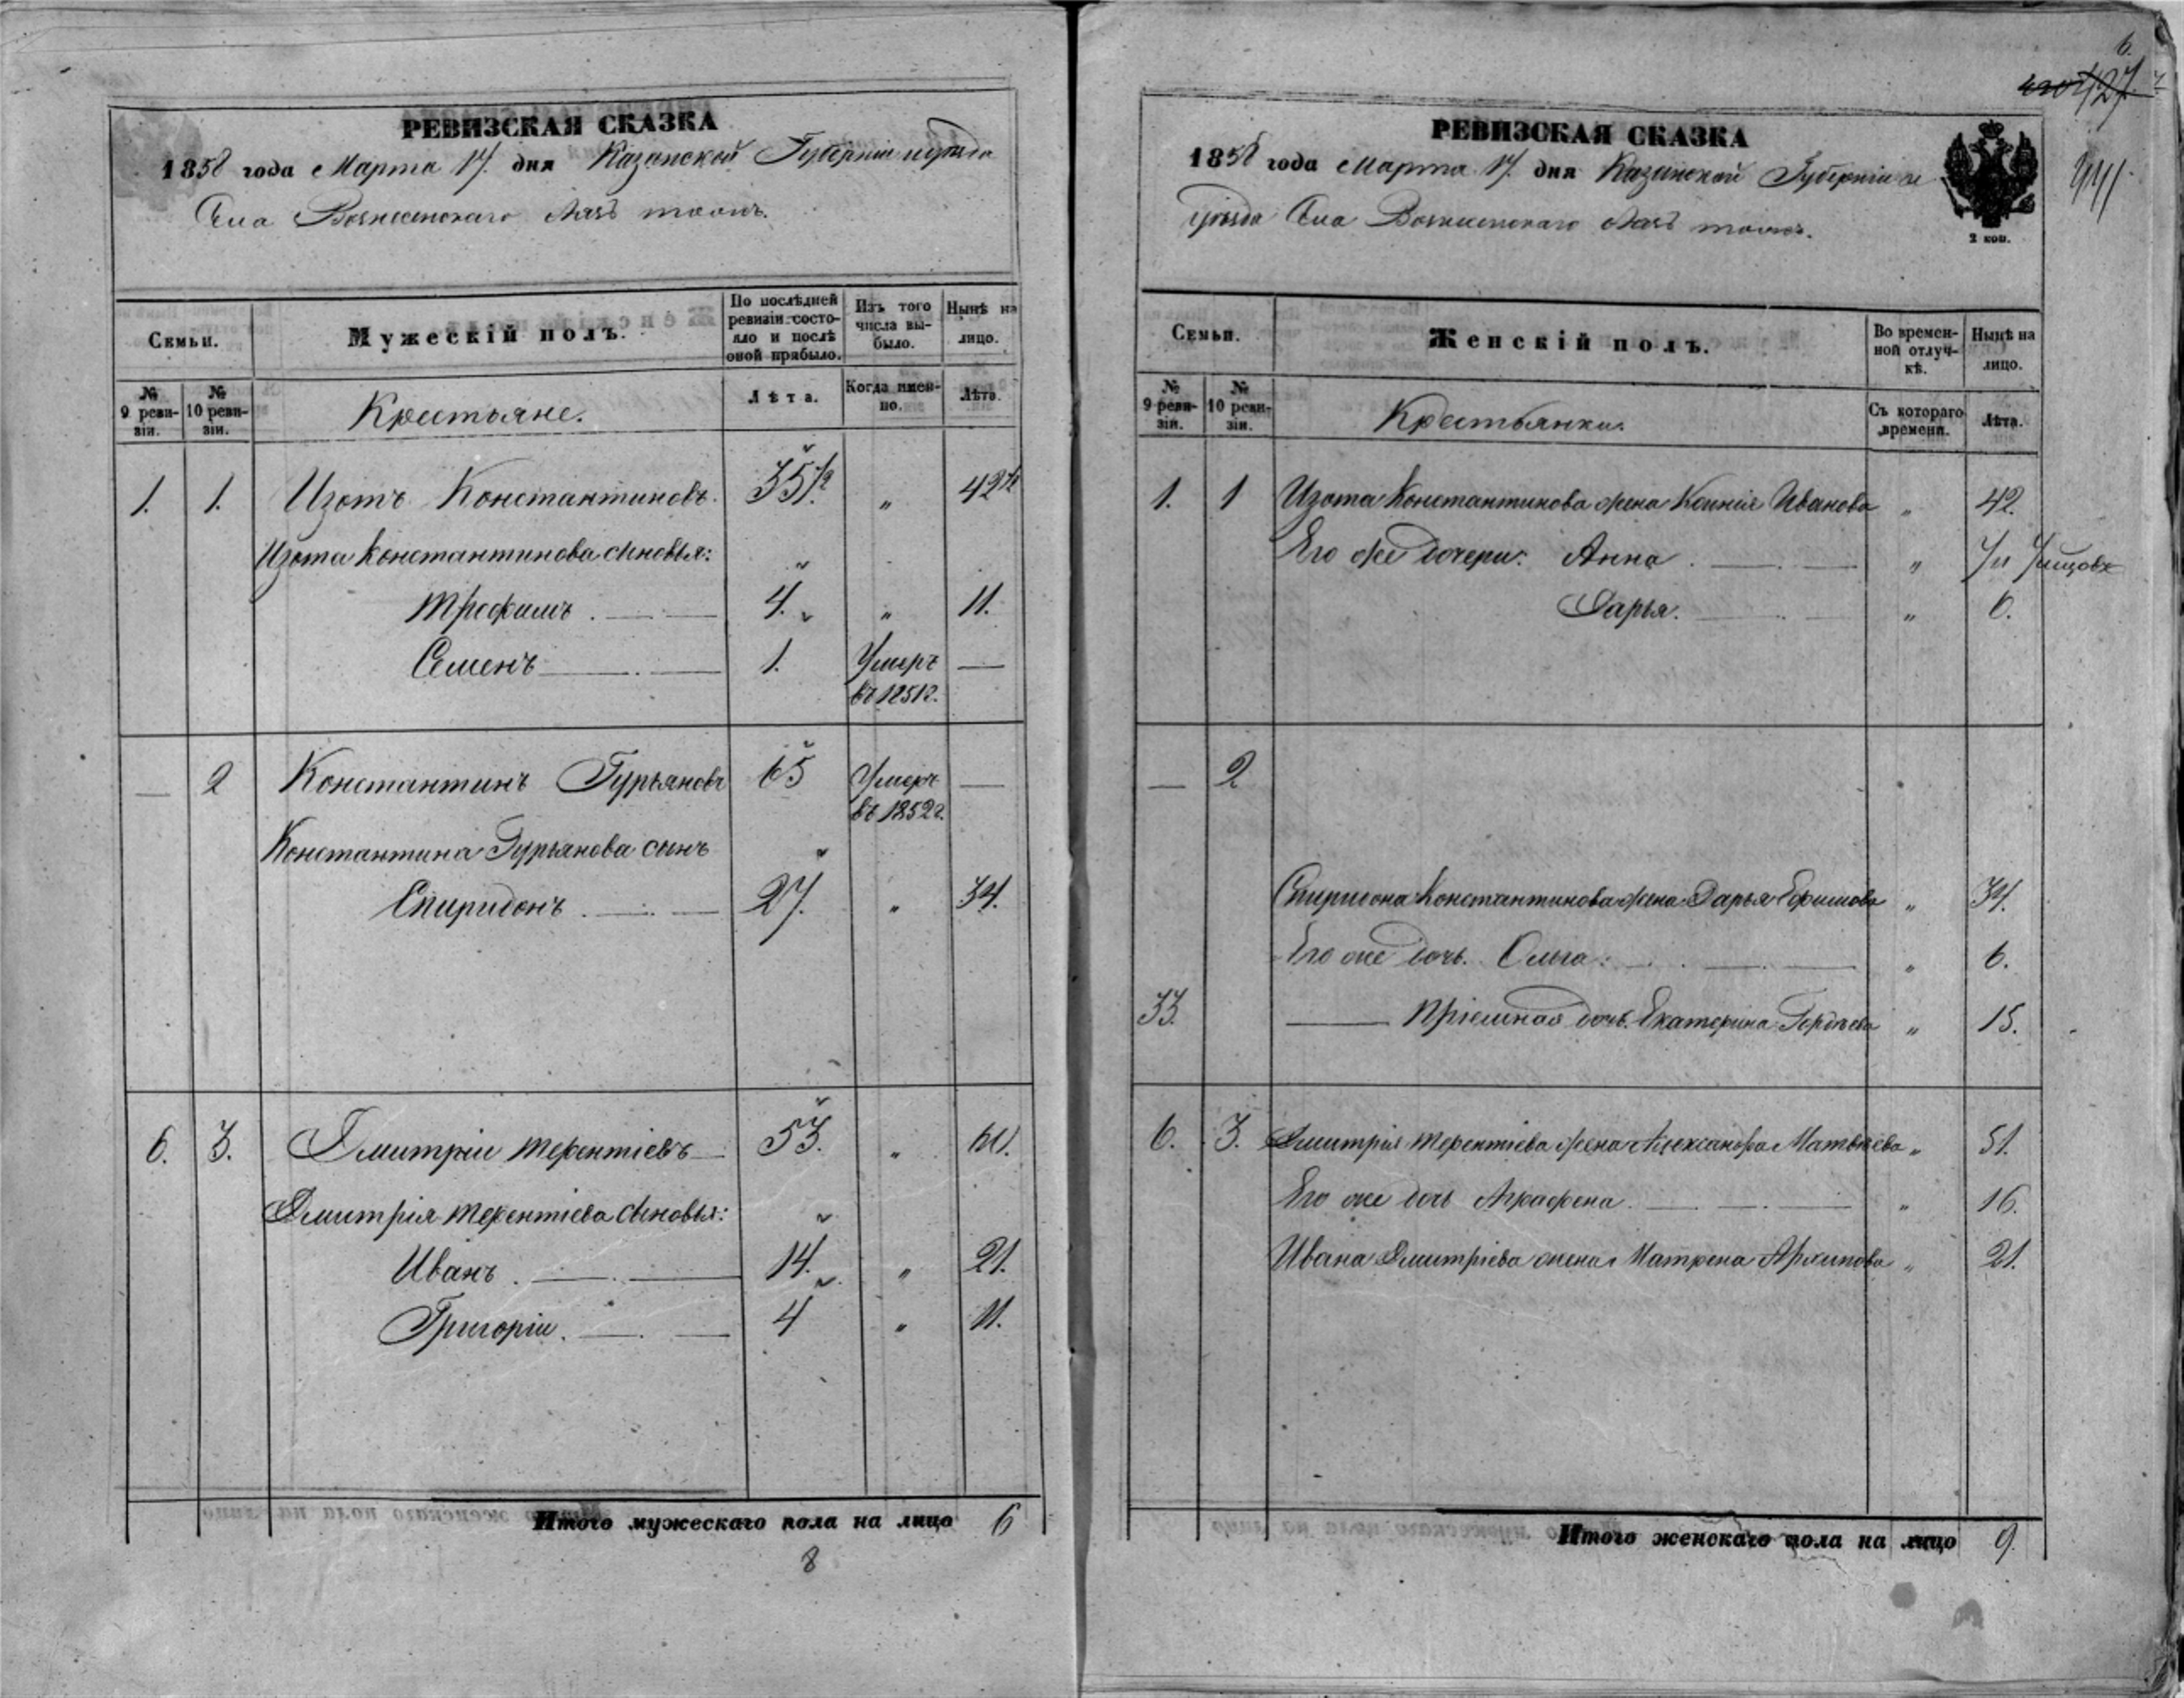 РЕВИЗСКАЯ СКАЗКА
1858 года Марта 17. дня Казанской Губерніи и уѣзда
Села Вознесенскаго тожъ.
Семьи.
Мужескій полъ.
По послѣдней ревизіи состояло и послѣ оной прибыло.
Изъ того числа выбыло.
Нынѣ на лицо.
№ 9 ревизіи.
№ 10 ревизіи.
Крестьяне.
Лѣта.
Когда именно.
Лѣта.
1. 1. Изотъ Константиновъ. 35 1/2. „ 42 1/2
Изота Константинова сыновья:
Трофимъ . 4. „ 11.
Семенъ 1. Умеръ —
въ 1851г.
— 2 Константинъ Гурьяновъ 65 Умеръ —
въ 1852г.
Константина Гурьянова сынъ
Спиридонъ . 27. „ 34.
6. 3. Дмитріи Терентіевъ 53. „ 60.
Дмитрія Терентіева сыновья:
Иванъ . 14. „ 21.
Григоріи. 4 „ 11.
Итого мужескаго пола на лицо 6
8
6.
427.
РЕВИЗСКАЯ СКАЗКА
1858 года Марта 17. дня Казанской Губерніи и
уѣзда Села Вознесенскаго тожъ.
2 коп.
Семьи.
Женскій полъ.
Во временной отлучкѣ.
Нынѣ на лицо.
№ 9 ревизіи.
№ 10 ревизіи.
Крестьянки.
Съ котораго времени.
Лѣта.
1. 1 Изота Константинова жена Ксенія Иванова „ 42.
Его же дочери: Анна . „
Дарья. „ 6.
— 2.
Спиридона Константинова жена Дарья Ефимова „ 34.
Его же дочь. Ольга: „ 6.
33. — Пріемная дочь. Екатерина Гордѣева „ 15.
6. 3. Дмитрія Терентіева жена Александра Матвѣева „ 51.
Его же дочь Аграфена. „ 16.
Ивана Дмитріева жена Матрена Архипова „ 21.
Итого женскаго пола на лицо 9.